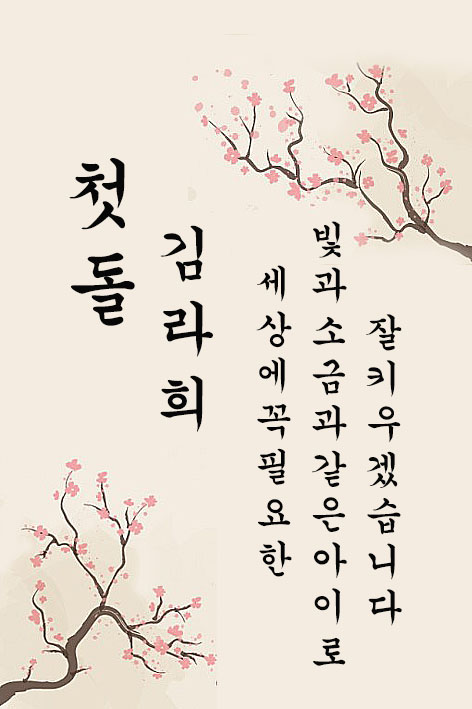 첫돌
김라희
세상에꼭필요한
빛과소금과같은아이로
잘키우겠습니다